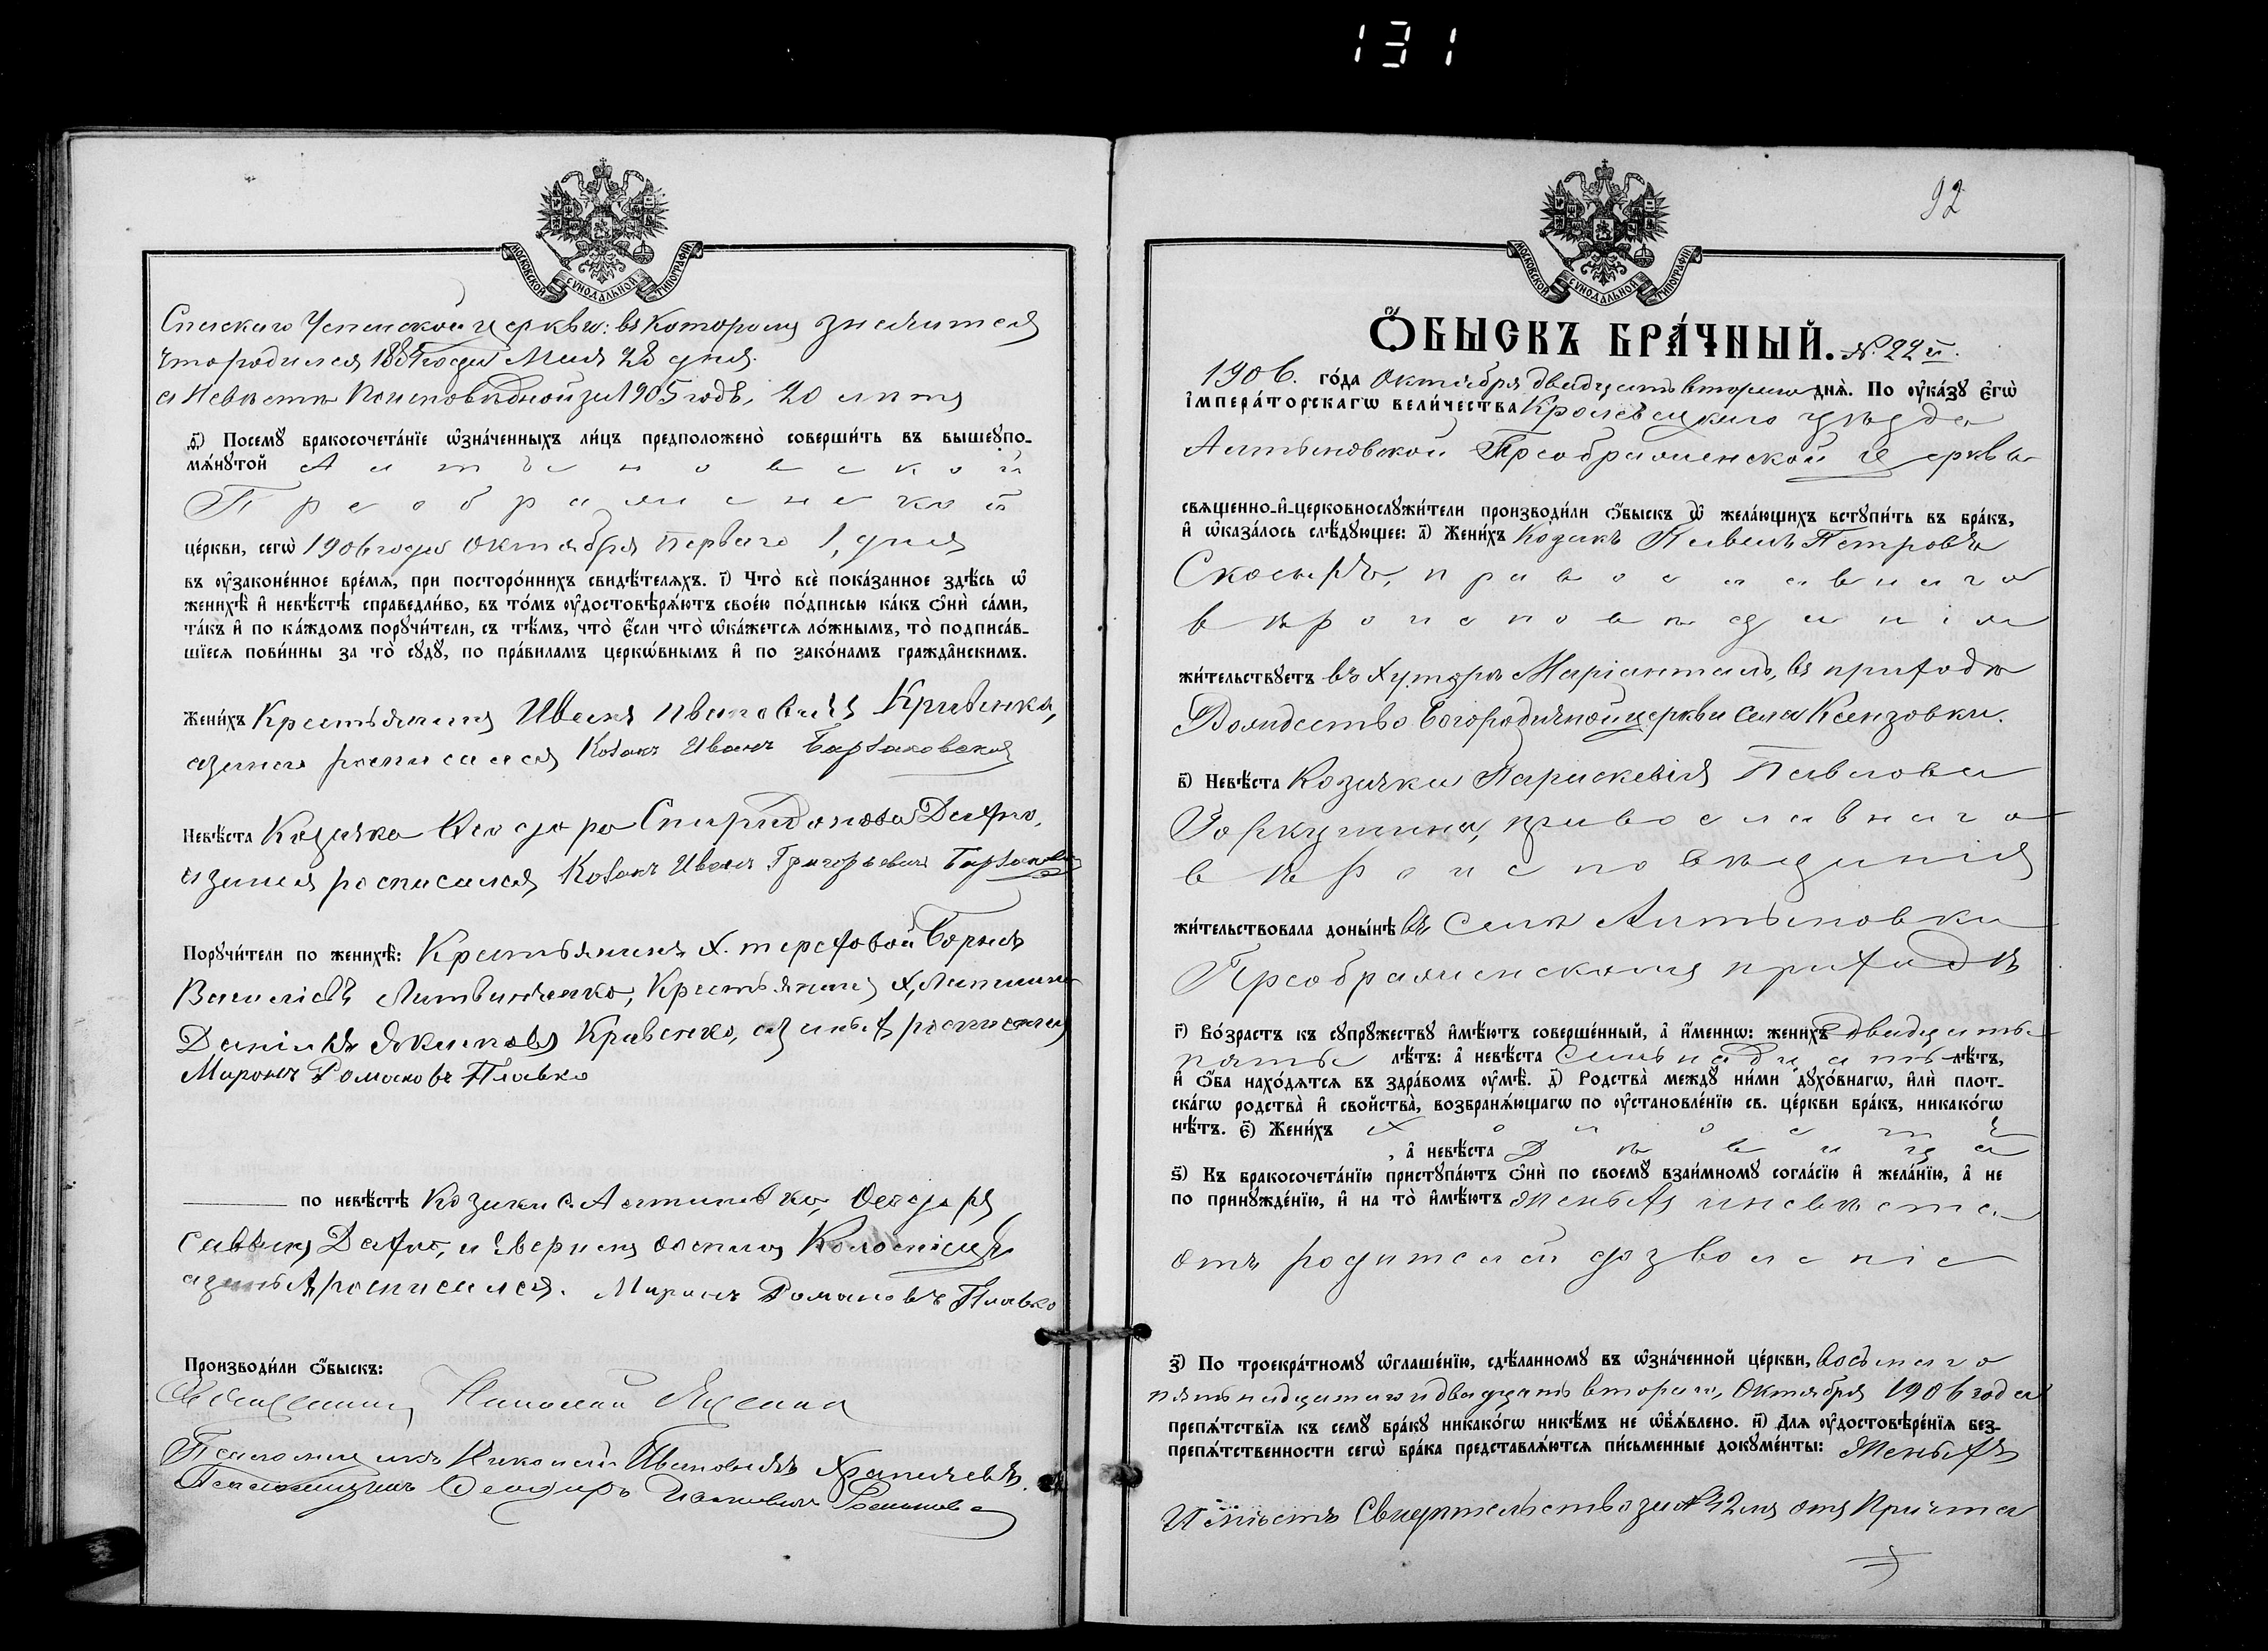 131
МОСКОВСКОЙ СѴНОДАЛЬНОЙ ТИПОГРАФІИ
Спаскаго Успенской церкви: въ которомъ значится
что родился 1884 года Мая 28 дня.
а Невѣста Исповѣдной за 1905 годъ, 20 лѣтъ
д҃) Посемꙋ̀ бракосочета́нїе ѡ҆зна́ченныхъ ли́цъ предположено̀ соверши́ть въ вышеꙋпо-
мѧ́нꙋтой Алтыновской
Преображенской
це́ркви, сегѡ̀ 1906 года Октября Перваго 1, дня
въ ᲂу҆законе́нное вре́мѧ, при посторо́ннихъ свидѣ́телѧхъ. і҃) Что̀ всѐ пока́занное здѣ́сь ѡ҆
женихѣ̀ и҆ невѣ́стѣ справедли́во, въ то́мъ ᲂу҆достовѣрѧ́ютъ свое́ю по́дписью ка́къ ѻ҆нѝ са́ми,
та́къ и҆ по ка́ждомъ порꙋчи́тели, съ тѣ́мъ, что̀ є҆́сли что̀ ѡ҆ка́жетсѧ ло́жнымъ, то̀ подписа́в-
шїесѧ пови́нны за то̀ сꙋдꙋ̀, по пра́виламъ церкѡ́внымъ и҆ по зако́намъ гражда̑нскимъ.
Жени́хъ Крестьянинъ Иванъ Ивановичъ Кривенко,
а за него росписался Козакъ Иванъ
Невѣ́ста Козачка Ѳеодора Спиридонова Дахно,
а за нея росписался Козакъ Иванъ Григорьевичъ
Порꙋчи́тели по женихѣ̀: Крестьянинъ х.
Литвиненко, Крестьянинъ х.
Даніилъ Кравенко, а за нихъ росписался
Миронъ Романовъ Плавко
по невѣ́стѣ Козаки с. Алтыновки, Ѳеодоръ
Савинъ Дахно, и
а за нихъ росписался. Миронъ Романовъ Плавко
Производи́ли ѻ҆́быскъ:
Священникъ Николай
Псаломщикъ Николай Ивановичъ
Псаломщикъ
92
МОСКОВСКОЙ СѴНОДАЛЬНОЙ ТИПОГРАФІИ
Ѻ҆́БЫСКЪ БРА́ЧНЫЙ. № 22й.
1906. го́да Октября двадцать втораго днѧ̀. По ᲂу҆ка́зꙋ Є҆гѡ̀
І҆мпера́торскагѡ вели́чества Кролевецкаго уѣзда
Алтыновской Преображенской Церкви
свѧщенно-и҆-церковнослꙋжи́тели производи́ли ѻ҆́быскъ ѡ҆ жела́ющихъ встꙋпи́ть въ бра́къ,
и҆ ѡ҆каза́лось слѣ́дꙋющее: а҃) Жени́хъ Козакъ Павелъ Петровъ
Скосырь, православнаго
вѣроисповѣданія
жи́тельствꙋетъ въ Хуторѣ Маріанталь, въ приходѣ
Рождество Богородичной церкви села Ксензовки.
в҃) Невѣ́ста Козачка Параскевія Павлова
православнаго
вѣроисповѣданія
жи́тельствовала доны́нѣ въ Селѣ Алтыновки
Преображенскомъ приходѣ
г҃) Во́зрастъ къ сꙋпрꙋжествꙋ и҆мѣ́ютъ соверше́нный, а҆̀ и҆́меннѡ: жени́хъ двадцать
пять лѣ́тъ: а҆̀ невѣ́ста Семьнадцать лѣ́тъ,
и҆ ѻ҆́ба нахо́дѧтсѧ въ здра́вомъ ᲂу҆мѣ̀. д҃) Родства̀ междꙋ̀ ни́ми дꙋхо́внагѡ, и҆лѝ плот-
ска́гѡ родства̀ и҆ свойства̀, возбранѧ́ющагѡ по ᲂу҆становле́нїю св. це́ркви бра́къ, никако́гѡ
нѣ́тъ. є҃) Жени́хъ холостъ
, а҆̀ невѣ́ста Дѣвица
ѕ҃) Къ бракосочета́нїю пристꙋпа́ютъ ѻ҆нѝ по своемꙋ̀ взаи́мномꙋ согла́сїю и҆ жела́нїю, а҆̀ не
по принꙋжде́нїю, и҆ на то̀ и҆мѣ́ютъ женихъ и невѣста
отъ родителей дозволеніе
з҃) По троекра́тномꙋ ѡ҆глаше́нїю, сдѣ́ланномꙋ въ ѡ҆зна́ченной це́ркви, восьмаго
пятьнадцатаго и двадцать втораго, Октября 1906 года
препѧ́тствїѧ къ семꙋ̀ бра́кꙋ никако́гѡ никѣ́мъ не ѡ҆б̾ѧ́влено. и҃) Длѧ ᲂу҆достовѣре́нїѧ без-
препѧ́тственности сегѡ̀ бра́ка представлѧ́ютсѧ пи́сьменные докꙋме́нты: Женихъ
Имѣетъ Свидѣтельство за № 42мъ отъ Причта